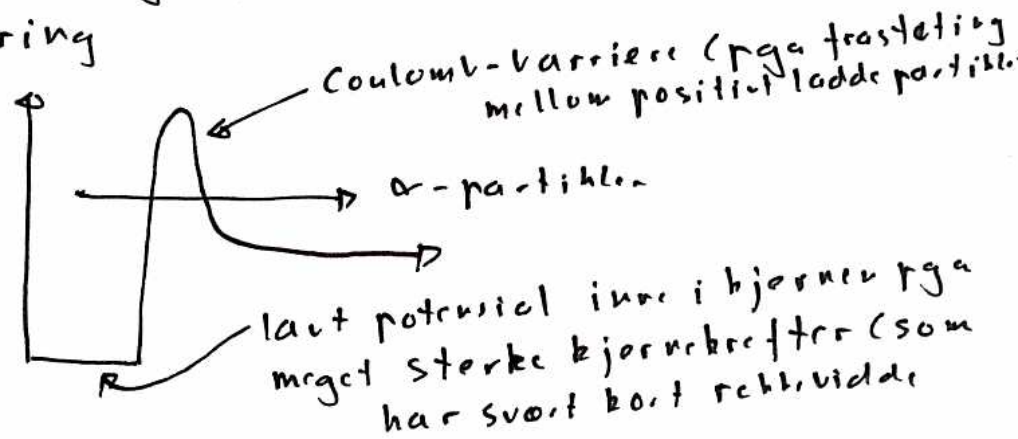 ring
Coulomb-barriere (pga frastøting
mellom positivt ladde partikler
α-partikler
lavt potensial inne i kjernen pga
meget sterke kjernekrefter (som
har svært kort rekkevidde